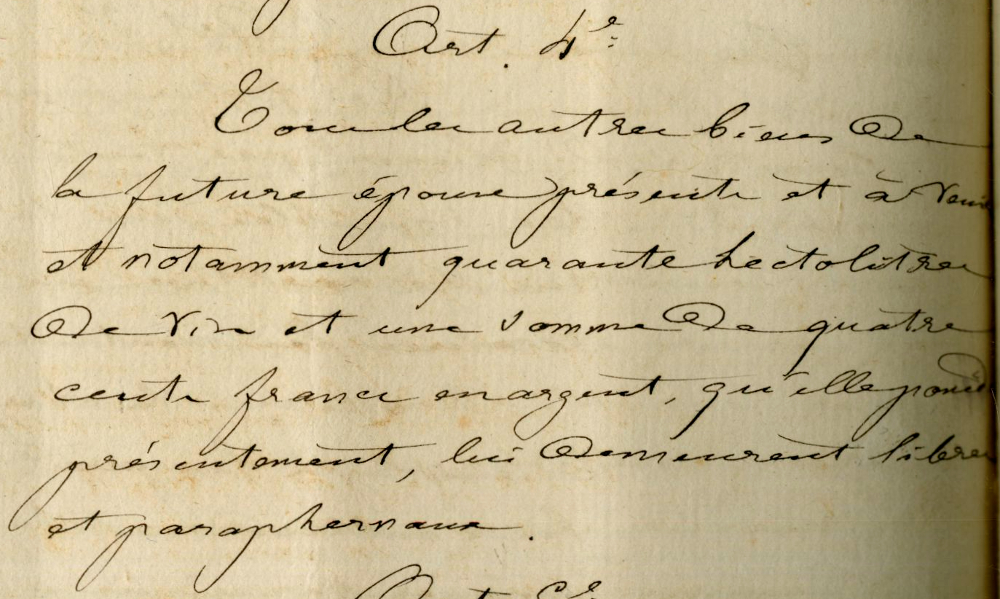 Art. 4e:
Tous les autres biens de
la future épouse présents et à venir
et notamment quarante hectolitres
de vin et une somme de quatre
cents francs en argent, qu'elle possède
présentement, lui demeurent libres
et paraphernaux.